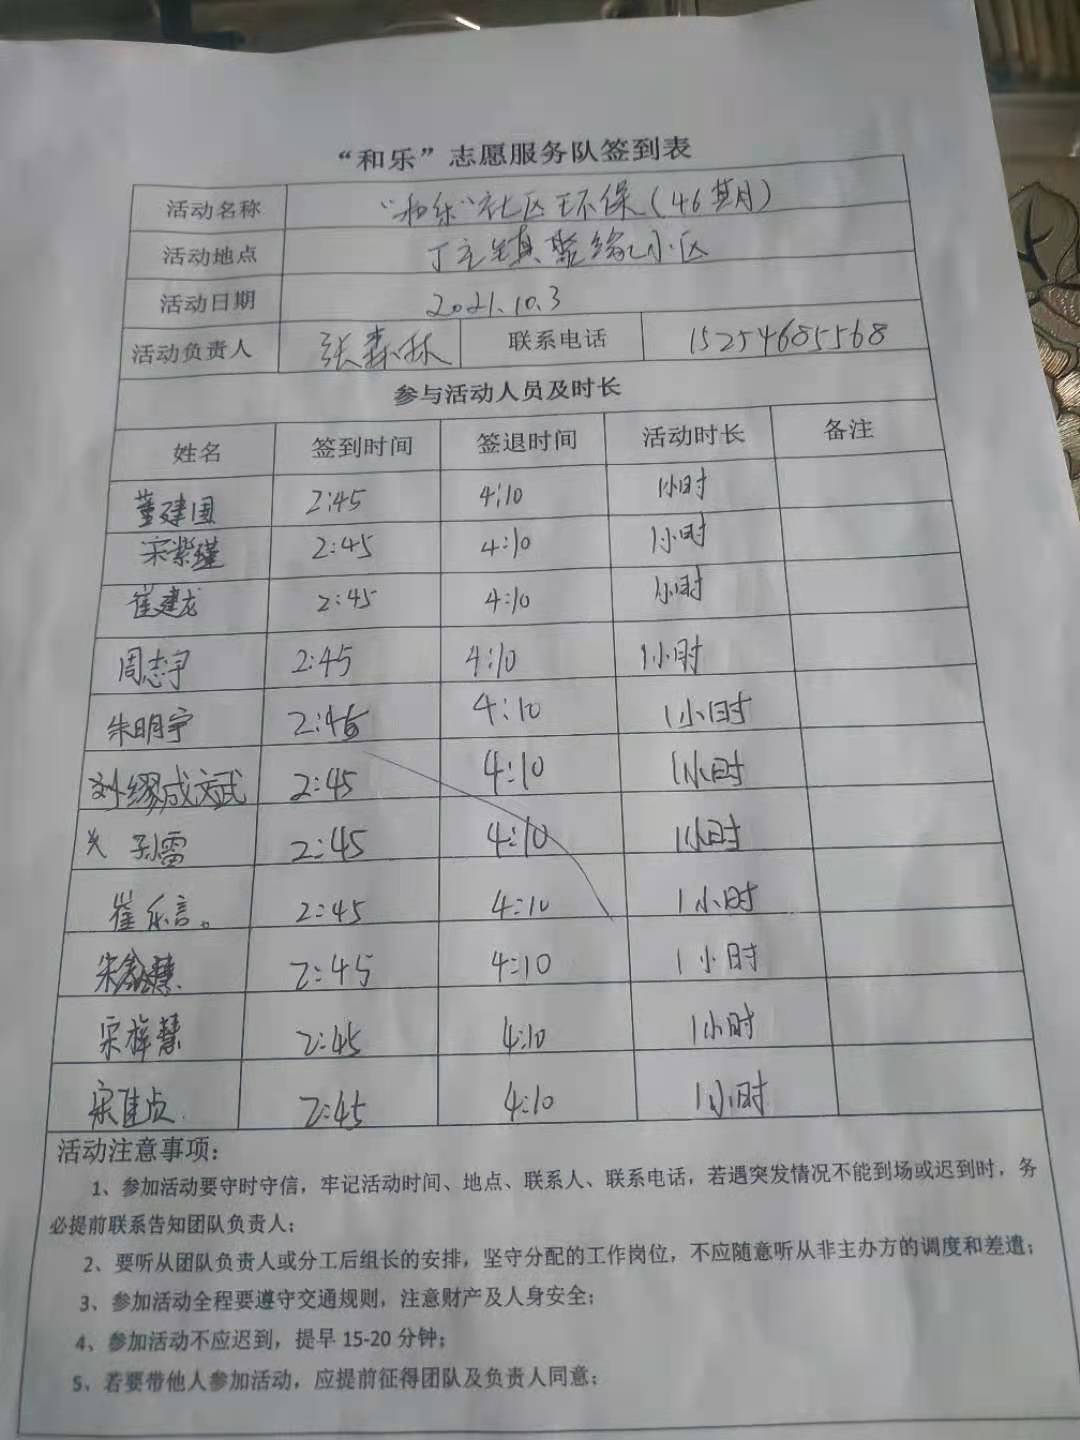 “和乐”志愿服务队签到表
活动名称 “和乐”社区环保（46期）
活动地点 丁庄镇聚缘小区
活动日期 2021.10.3
活动负责人 张森林 联系电话 15254685568
参与活动人员及时长
姓名 签到时间 签退时间 活动时长 备注
董建国 2:45 4:10 1小时
宋紫瑾 2:45 4:10 1小时
崔建龙 2:45 4:10 1小时
周志宇 2:45 4:10 1小时
朱明宇 2:45 4:10 1小时
刘缪成斌 2:45 4:10 1小时
孙雷 2:45 4:10 1小时
崔乐言。 2:45 4:10 1小时
2:45 4:10 1小时
宋梓慧 2:45 4:10 1小时
宋佳贞. 2:45 4:10 1小时
活动注意事项：
1、参加活动要守时守信，牢记活动时间、地点、联系人、联系电话，若遇突发情况不能到场或迟到时，务
必提前联系告知团队负责人；
2、要听从团队负责人或分工后组长的安排，坚守分配的工作岗位，不应随意听从非主办方的调度和差遣；
3、参加活动全程要遵守交通规则，注意财产及人身安全；
4、参加活动不应迟到，提早 15-20 分钟；
5、若要带他人参加活动，应提前征得团队及负责人同意；